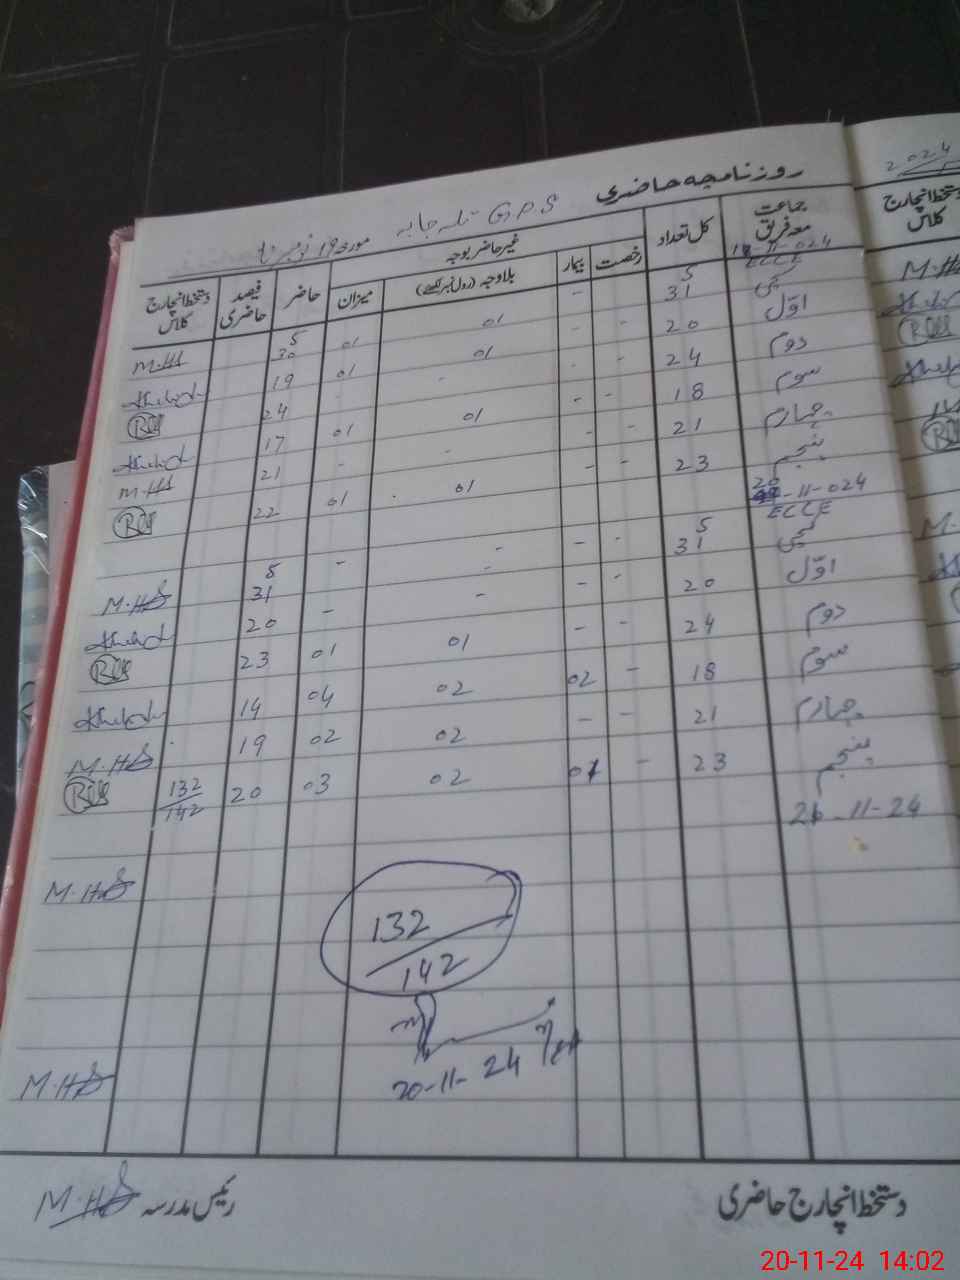 2024
روزنامچہ حاضری G.P.S تلہ جابہ مورخہ 19 نومبر
جماعت معہ فریق کل تعداد غیر حاضر بوجہ حاضر فیصد حاضری دستخط انچارج کلاس
رخصت بیمار بلاوجہ (رول نمبر لکھئے) میزان
دستخط انچارج کلاس
11-024
ECCE 5 5
کچی 31 - 01 01 30 M.HS
اوّل 20 - - 01 01 19
دوم 24 - . - 24 ROU
سوم 18 - - 01 01 17
چہارم 21 - - - - 21 M.HS
پنجم 23 - - 01 01 22 ROU
20-11-024
ECCE 5 - - - - 5
کچی 31 - - - 31 M.HS
اوّل 20 - - 20
دوم 24 - - 01 01 23 ROU
سوم 18 - 02 02 04 14
چہارم 21 - - 02 02 19 M.HS
پنجم 23 - 01 02 03 20 132/142 ROU
-11-24
M.HS
132
142
20-11-24
M.HS
دستخط انچارج حاضری رئیس مدرسہ M.HS
20-11-24 14:02